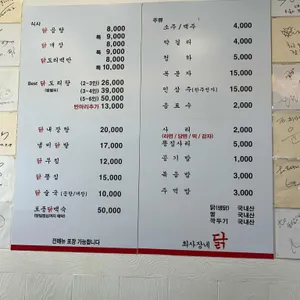 식사
닭곰탕 8,000
특 9,000
닭개장 8,000
특 9,000
닭도리백반 8,000
특 10,000
Best 닭도리탕 (2~3인) 26,000
(3~4인) 39,000
(5~6인) 50,000
반마리추가 13,000
닭내장탕 20,000
냄비닭탕 17,000
닭무침 12,000
닭찜 15,000
닭술국 10,000
토종닭백숙 50,000
전메뉴 포장 가능합니다
주류
소주/맥주 4,000
막걸리 4,000
청하 5,000
복분자 15,000
인삼주 15,000
음료수 2,000
사리 2,000
(라면 / 당면 / 떡 / 감자)
쫄깃사리 5,000
공기밥 1,000
볶음밥 3,000
주먹밥 3,000
닭(생닭) 국내산
쌀 국내산
깍두기 국내산
최사장네 닭